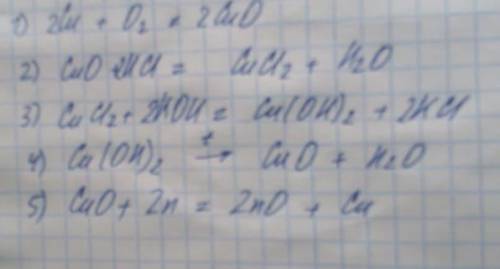 1) 2Cu + O₂ = 2CuO
2) CuO 2HCl = CuCl₂ + H₂O
3) CuCl₂ + 2KOH = Cu(OH)₂ + 2KCl
4) Cu(OH)₂ t→ CuO + H₂O
5) CuO + Zn = ZnO + Cu